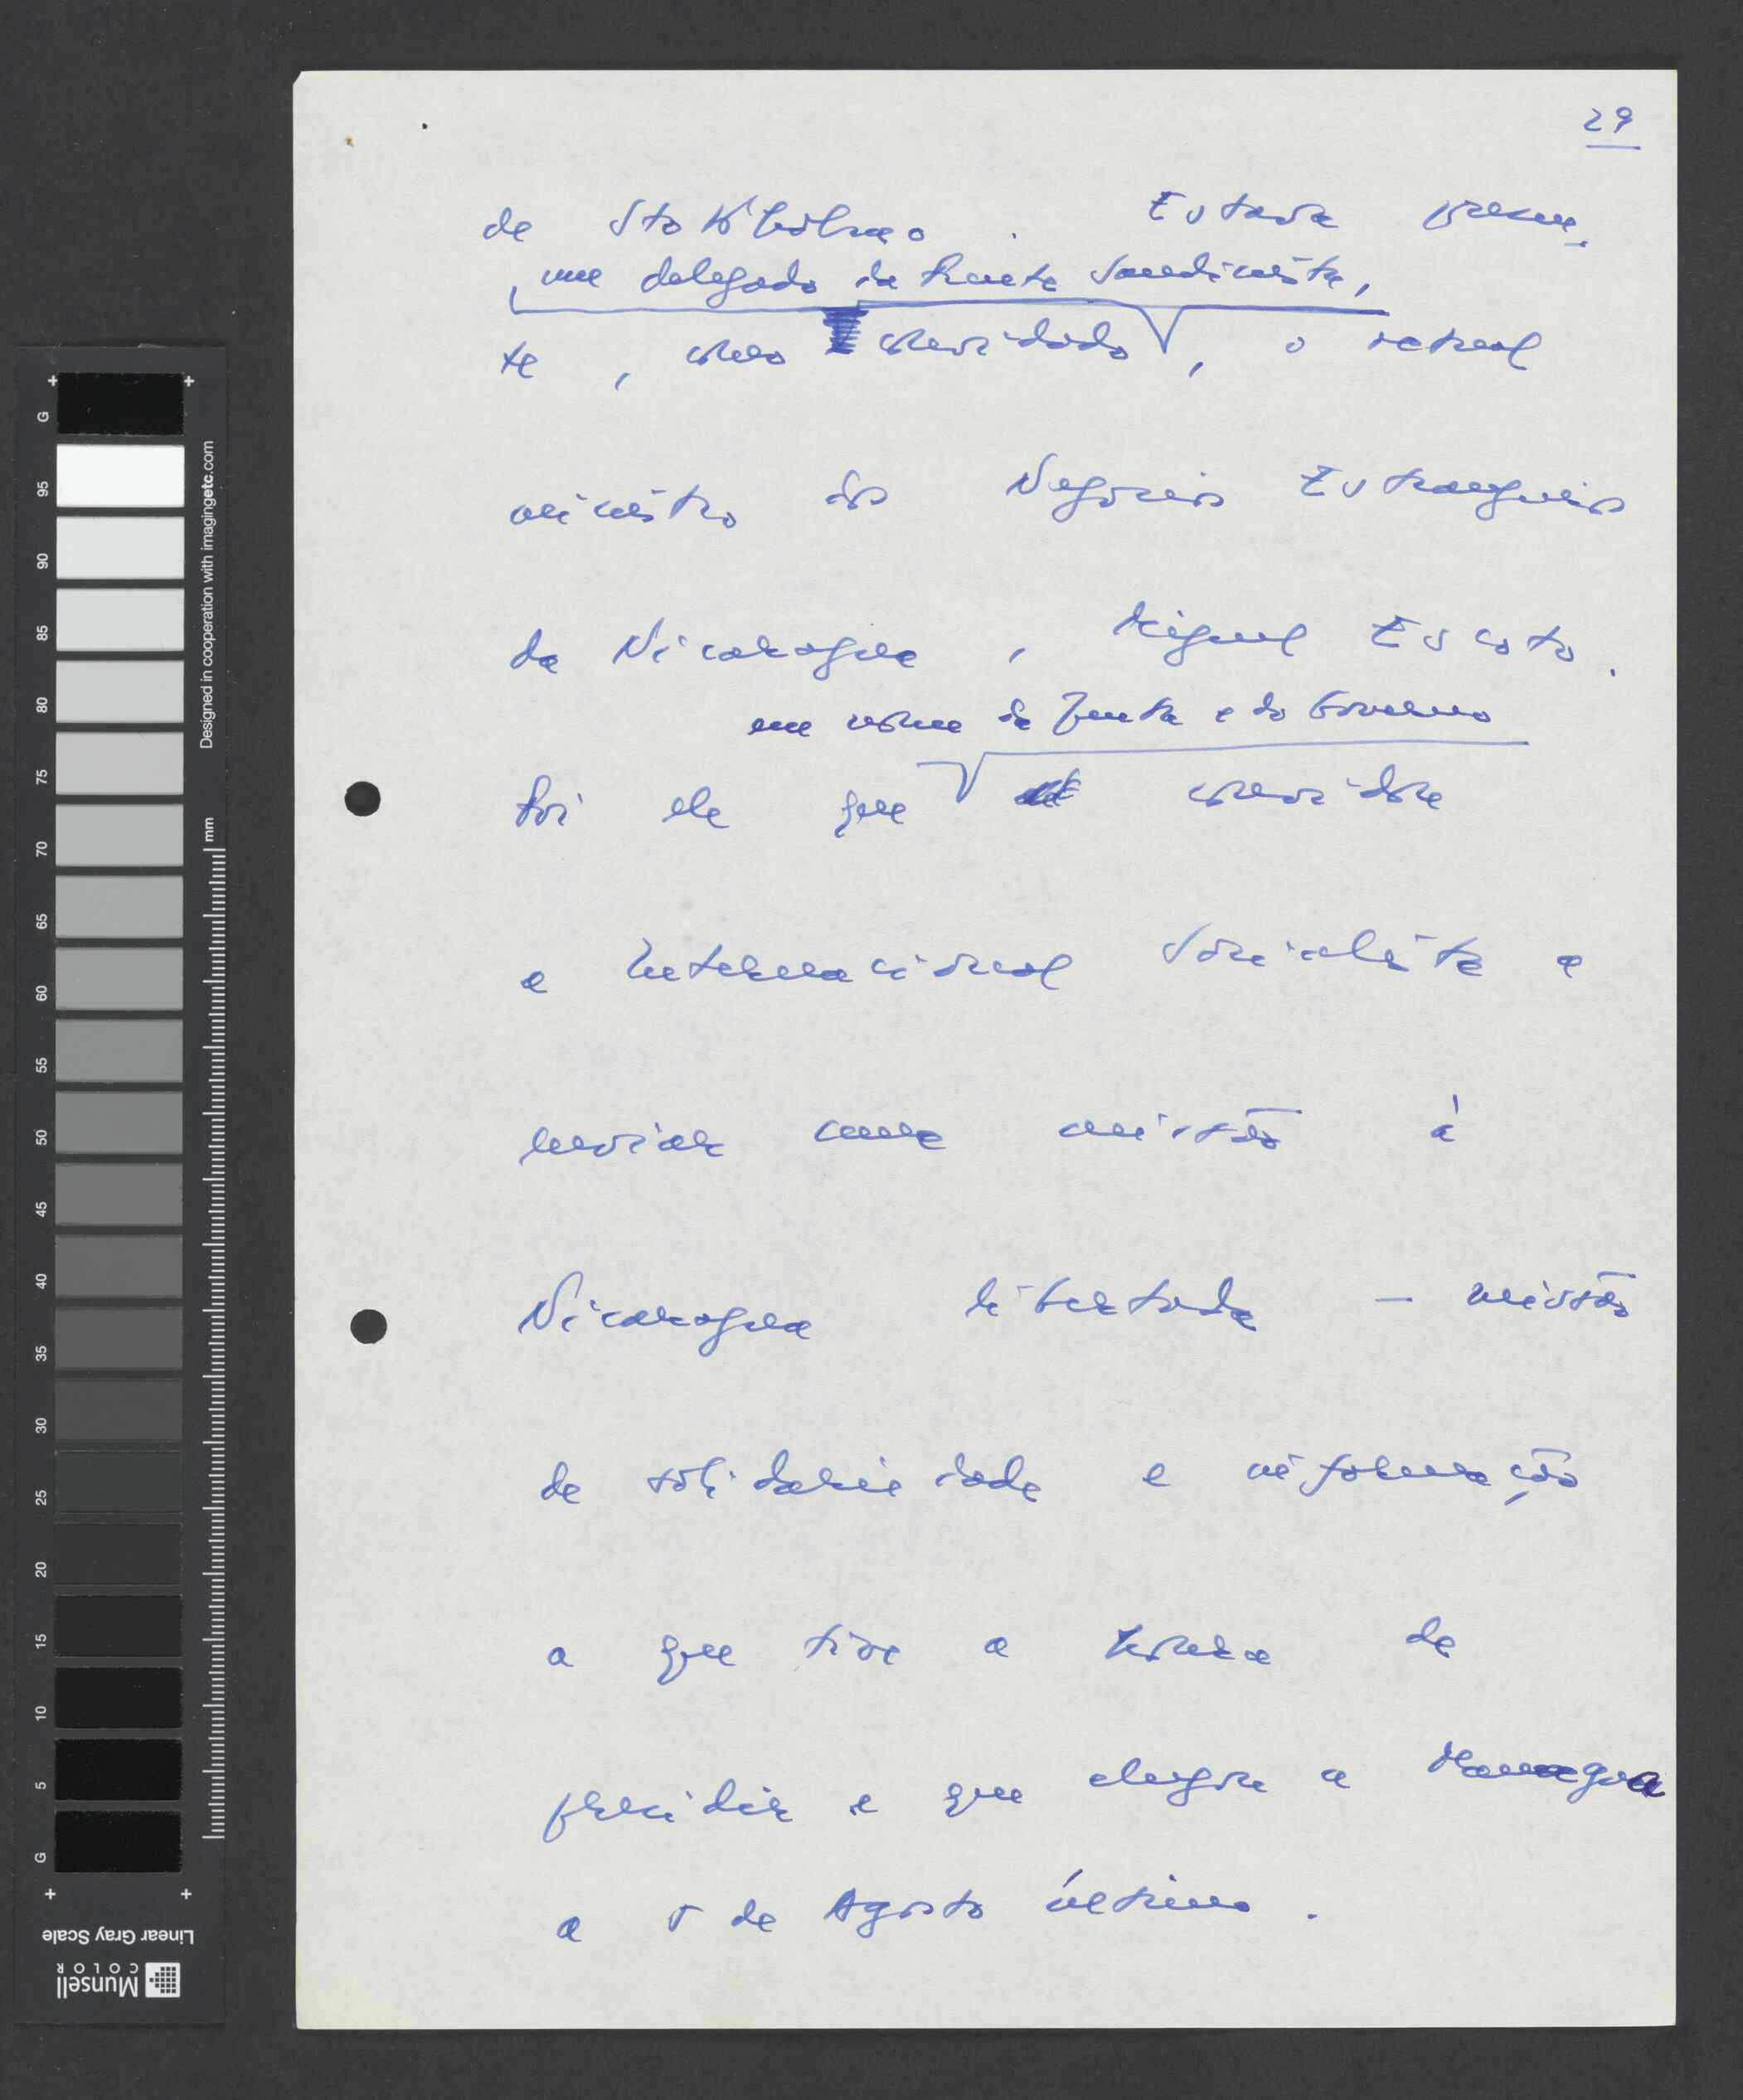 29
de Stokholmo. Estava presen-
, um delegado da Frente Sandinista,
te, como convidado, o actual
ministro dos Negócios Estrangeiros
da Nicaragua, Miguel Escoto.
em nome da Junta e do Governo
Foi ele que convidou
a Internacional Socialista a
enviar uma missão à
Nicaragua libertada – missão
de solidariedade e informação
a que tive a honra de
presidir e que chegou a Managua
a 5 de Agosto último.
G
95
90
85
80
75
70
65
60
55
50
45
40
35
30
25
20
15
10
5
G
Designed in cooperation with imagingetc.com
mm
Linear Gray Scale
Munsell
COLOR